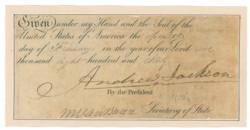 Given under my Hand and the Seal of the
United States of America the
day of February in the year of our Lord one
thousand eight hundred and
Andrew Jackson
By the President
Secretary of State